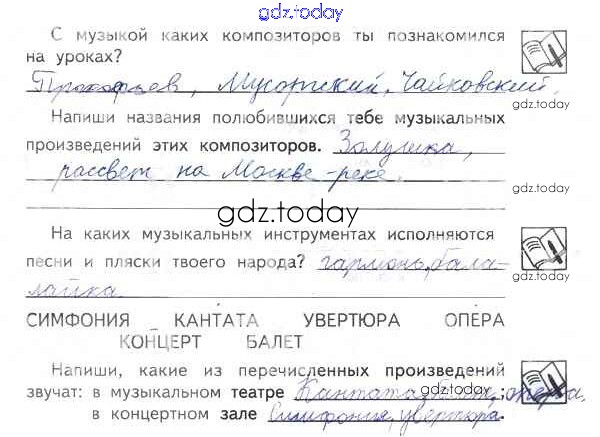 gdz.today
С музыкой каких композиторов ты познакомился
на уроках?
Прокофьев, Мусоргский, Чайковский.
gdz.today
Напиши названия полюбившихся тебе музыкальных
произведений этих композиторов. Золушка,
рассвет на Москве-реке.
gdz.today
gdz.today
На каких музыкальных инструментах исполняются
песни и пляски твоего народа? гармонь, бала-
лайка
gdz.today
СИМФОНИЯ КАНТАТА УВЕРТЮРА ОПЕРА
КОНЦЕРТ БАЛЕТ
Напиши, какие из перечисленных произведений
звучат: в музыкальном театре Кантата, опера,
gdz.today
в концертном зале Симфония, увертюра.